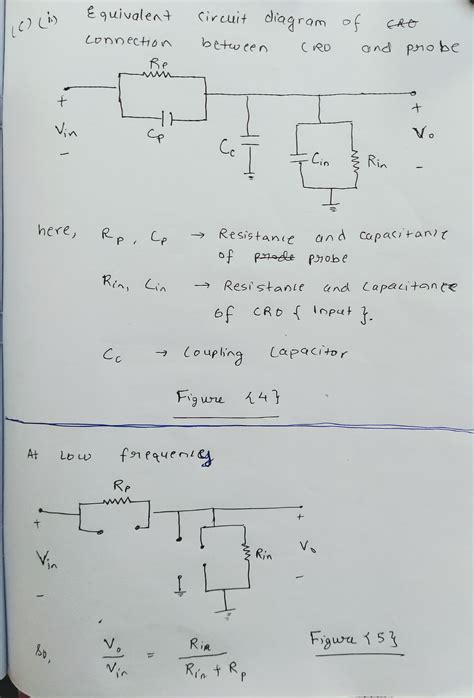 (c) (ii) Equivalent circuit diagram of CRO
connection between CRO and probe
Rp
+
+
Vin
Cp
Cc
Cin
Rin
Vo
-
-
here, Rp, Cp → Resistance and capacitance
of prode probe
Rin, Cin → Resistance and Capacitance
of CRO { Input }.
Cc → Coupling Capacitor
Figure {4}
At Low frequency
Rp
+
+
Vin
Rin
Vo
-
-
So, Vo/Vin = Rin/Rin + Rp
Figure {5}